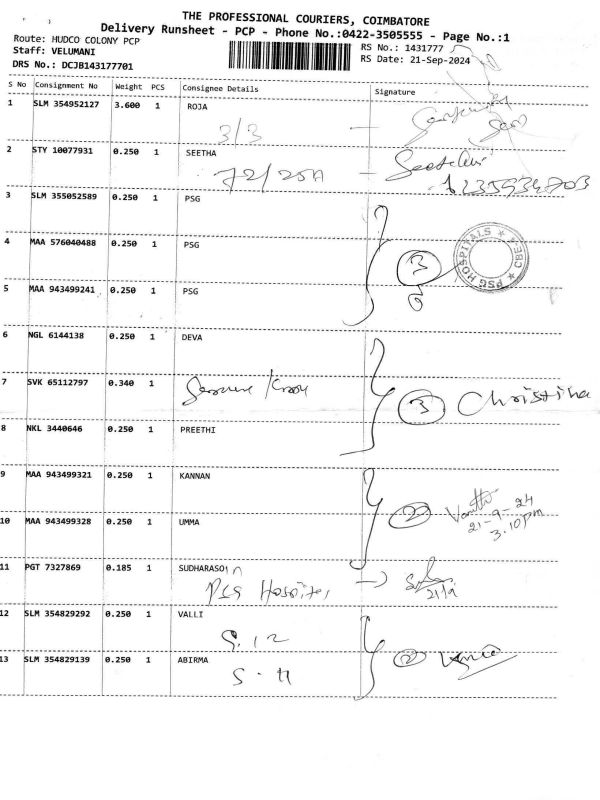 THE PROFESSIONAL COURIERS, COIMBATORE
Delivery Runsheet - PCP - Phone No.:0422-3505555 - Page No.:1
Route: HUDCO COLONY PCP
RS No.: 1431777
Staff: VELUMANI
RS Date: 21-Sep-2024
DRS No.: DCJB143177701
S No Consignment No Weight PCS Consignee Details Signature
1 SLM 354952127 3.600 1 ROJA
3/3 -
2 STY 10077931 0.250 1 SEETHA
72/25A -
3 SLM 355052589 0.250 1 PSG
4 MAA 576040488 0.250 1 PSG
3
PSG HOSPITALS ★ CBE ★
5 MAA 943499241 0.250 1 PSG
6 NGL 6144138 0.250 1 DEVA
7 SVK 65112797 0.340 1
3 Christina
8 NKL 3440646 0.250 1 PREETHI
9 MAA 943499321 0.250 1 KANNAN
2
21-9-24
3.10pm
10 MAA 943499328 0.250 1 UMMA
11 PGT 7327869 0.185 1 SUDHARASOIN
PSG Hospital →
21/9
12 SLM 354829292 0.250 1 VALLI
S. 12
13 SLM 354829139 0.250 1 ABIRMA
2
S - 11